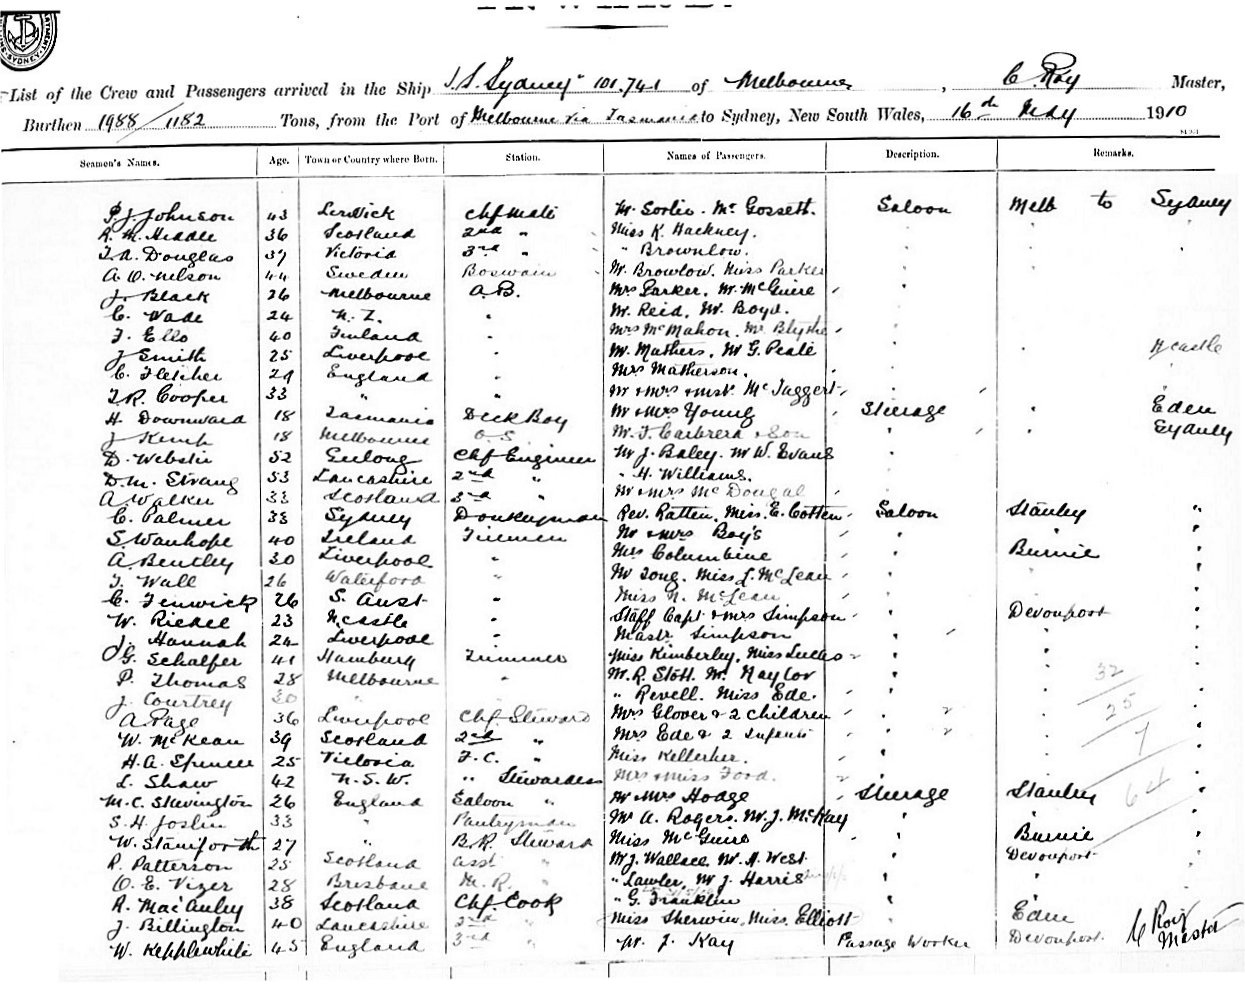 List of the Crew and Passengers arrived in the Ship S.S. "Sydney" 101.741 of Melbourne, C. Roy Master,
Burthen 1988/1182 Tons, from the Port of Melbourne via Tasmania to Sydney, New South Wales, 16th May 1910
Seamen's Names. Age. Town or Country where Born. Station. Names of Passengers. Description. Remarks.
P. J. Johnson 43 Lerwick Chf Mate Mr Sorlie. Mr Gossett. Saloon Melb to Sydney
R. M. Heddle 36 Scotland 2nd " Miss K. Hackney.
T. A. Douglas 37 Victoria 3rd " " Brownlow.
A. O. Nelson 44 Sweden Boswain Mr Browlow. Miss Parker
J. Black 26 Melbourne A.B. Mrs Parker. Mr McGuire
C. Wade 24 N.Z. " Mr Reid. Mr Boyd.
40 Finland " Mrs McMahon. Mr Blythe
J Smith 25 Liverpool " Mr Mathers. Mr G. Peale Ncastle
C. Fletcher 29 England " Mrs Matherson.
T. R. Cooper 33 " " Mr & Mrs & Mstr McTaggert
H. Downward 18 Tasmania Deck Boy Mr & Mrs Young Steerage Eden
J Kemp 18 Melbourne O.S. Mr F. Carbrera & Son Sydney
D. Webster 52 Geelong Chf Engineer Mr J. Baley. Mr W. Evans
D. M. Strang 53 Lancashire 2nd " " H. Williams.
A Walker 33 Scotland 3rd " Mr & Mrs McDougal
C. Palmer 38 Sydney Donkeyman Rev. Rattin. Miss. E. Cotten Saloon Stanley "
S Wanhope 40 Ireland Firemen Mr & Mrs Boys "
A Bentley 30 Liverpool " Mrs Columbine Burnie "
T. Wall 26 Waterford " Mr Tong. Miss L. McLean "
C. Fenwick 26 S. Aust " Miss N. McLean
W. Riedel 23 Ncastle " Staff Capt & Mrs Simpson Devonport
J. Hannah 24 Liverpool " Mastr Simpson
G. Schalfer 41 Hamburg Trimmer Miss Kimberley. Miss Lucas
P. Thomas 28 Melbourne " Mr R. Stott. Mr Naylor 32
J. Courtney 30 " " Revell. Miss Ede. 25
A Page 36 Liverpool Chf Steward Mrs Glover & 2 Children
W. McKean 39 Scotland 2nd " Mrs Ede & 2 Infants 7
H. A. Spencer 25 Victoria F.C. " Miss Kellerher.
L. Shaw 42 N.S.W. " Stewardess Mrs & Miss Ford. 64
M. C. Skevington 26 England Saloon " Mr Mrs Hodge Steerage Stanley
S. H. Joslin 33 " Pantryman Mr A. Rogers. Mr J. McKay
W. Staniforth 27 " B.R. Steward Miss McGuire Burnie
R. Patterson 25 Scotland Asst " Mr J. Wallace. Mr A. West Devonport
O. E. Vizer 28 Brisbane M.R. " " Lawler. Mr J. Harris
R. MacAuley 38 Scotland Chf Cook " G. Franklin
J. Billington 40 Lancashire 2nd " Miss Sherwin. Miss. Elliott Eden
W. Kepplewhite 45 England 3rd " Mr J. Kay Passage Worker Devonport.
C Roy
Master